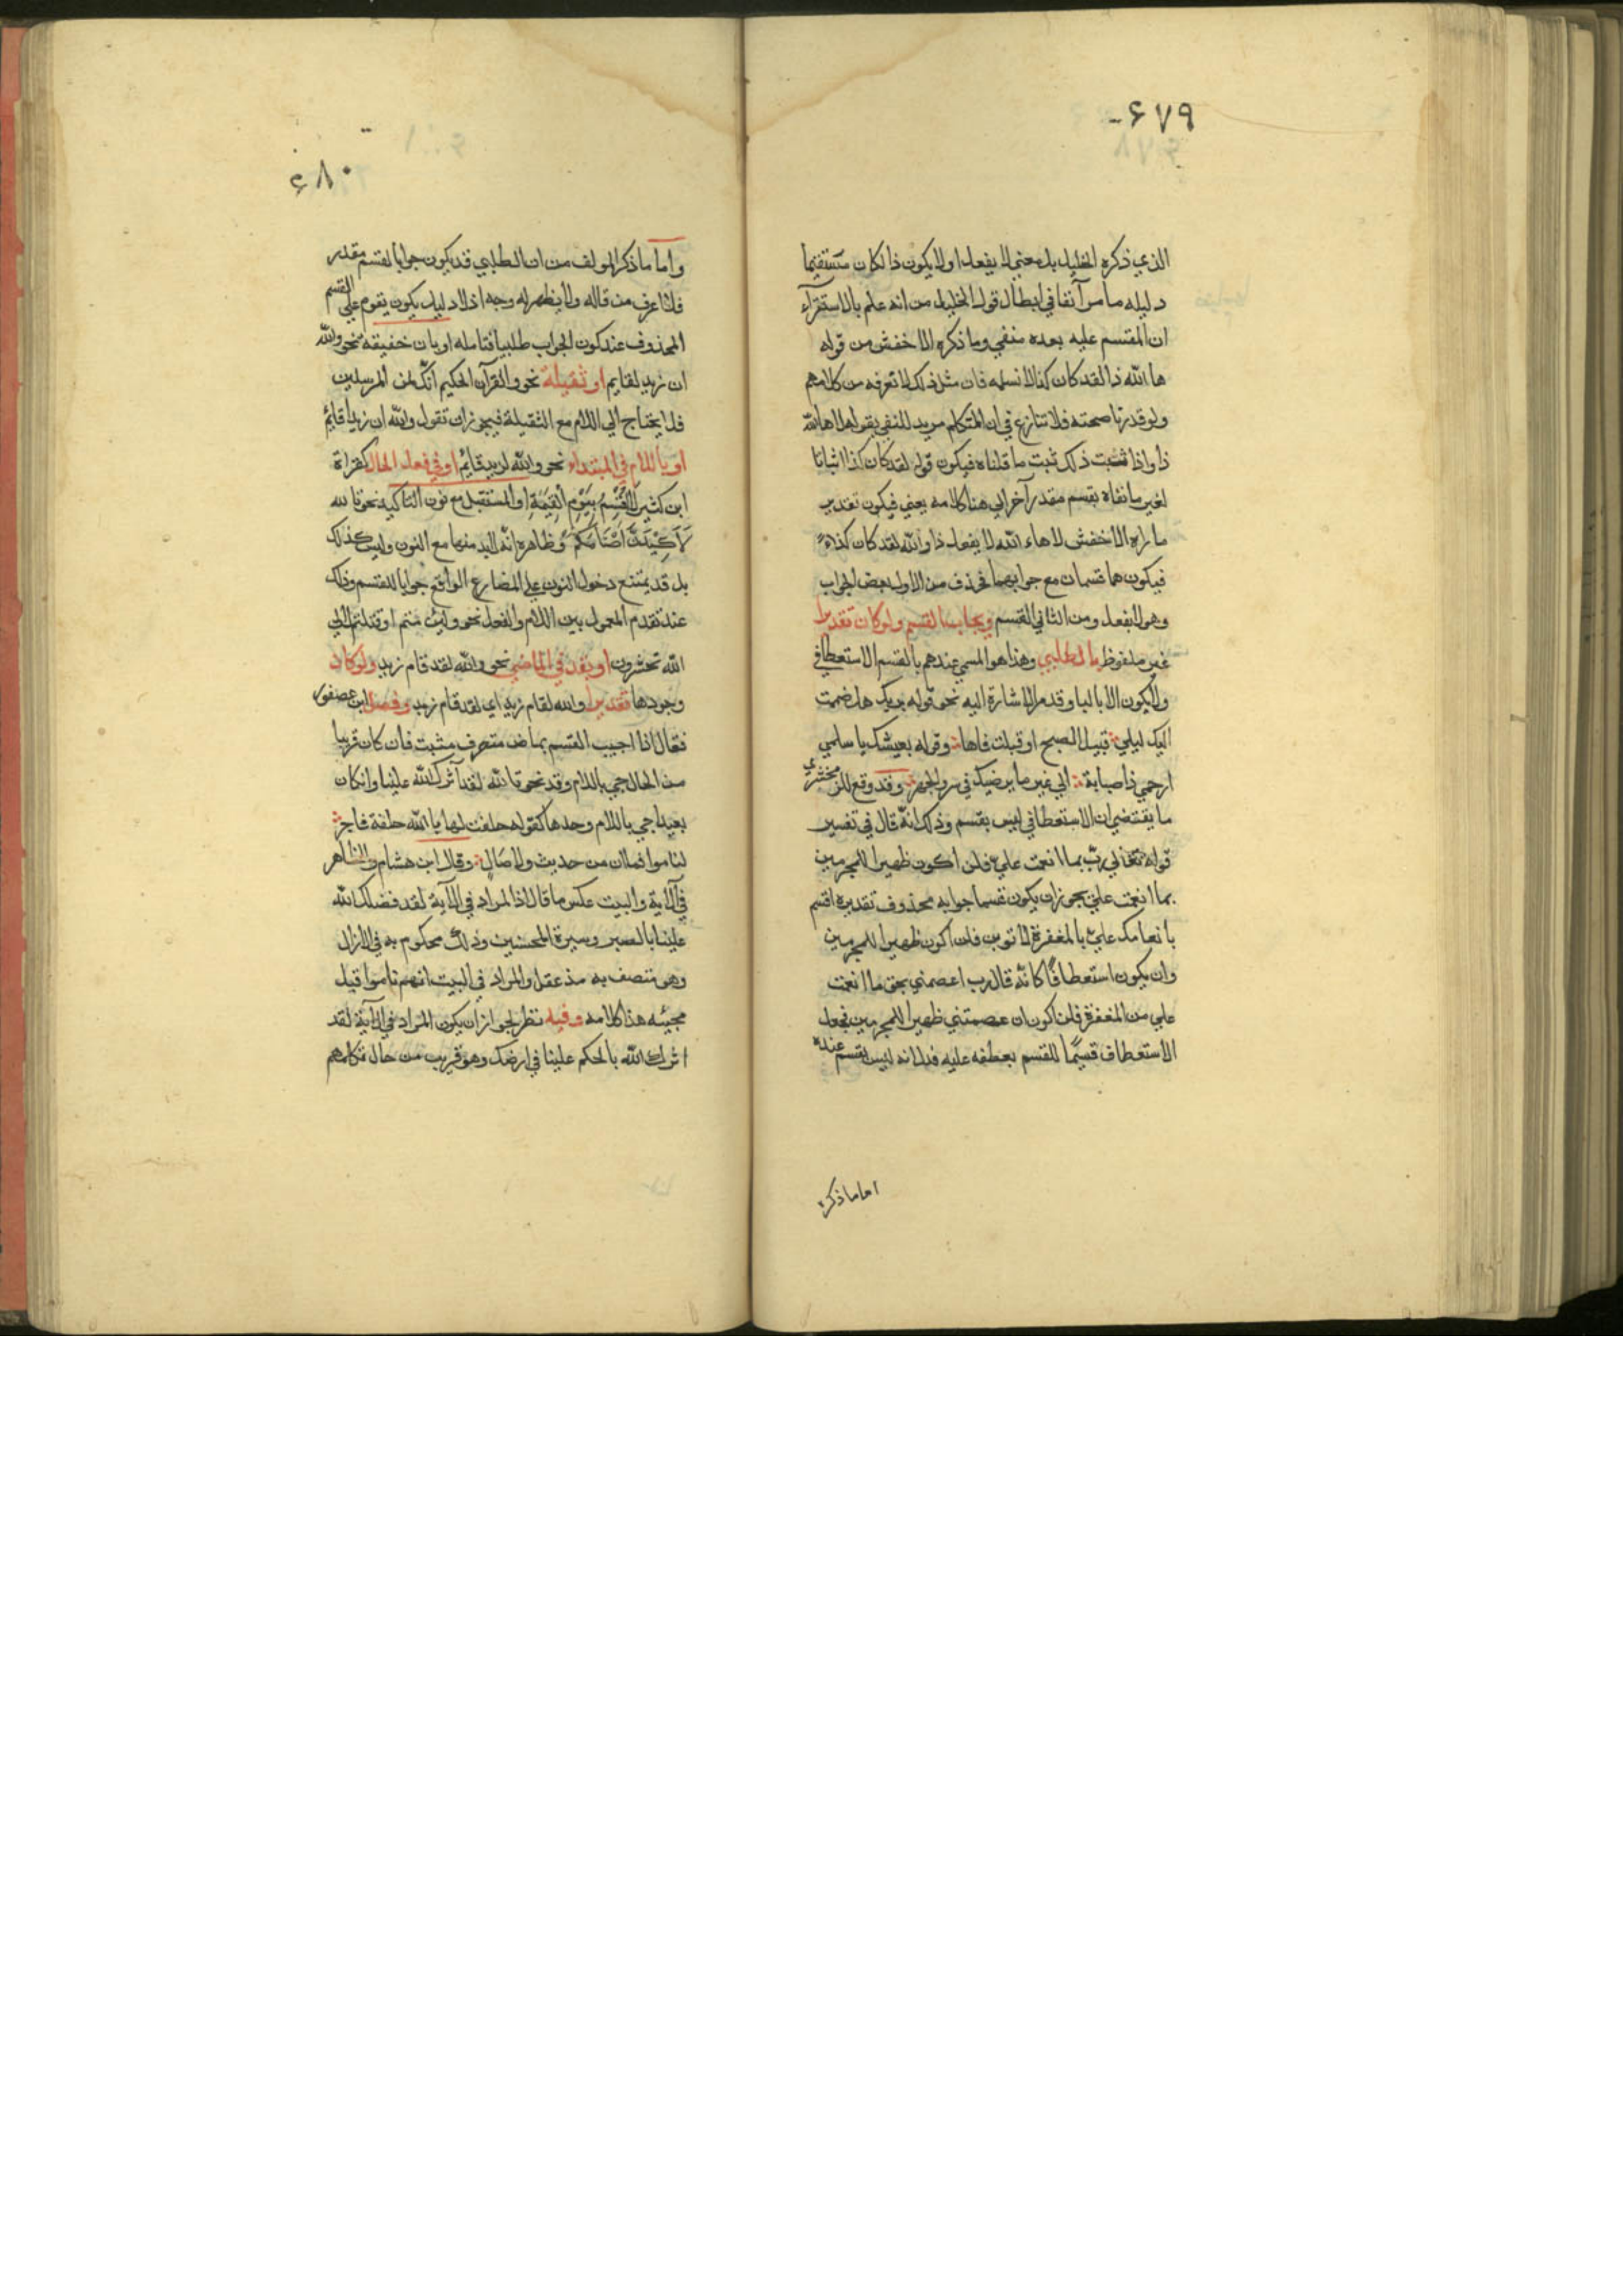 ٤٧٩
الذي ذكره الخليل بل معني لا يفعل او لا يكون ذا لكان مستقيما
دليله ما مر آنفا في ابطال قول الخليل من انه علم بالاستقرآء
ان المقتسم عليه بعده منفي وما ذكره الاخفش من قوله
ها الله ذا لقد كان كذا لا نسلمه فان مثل ذلك لا تعرفه من كلامهم
ولو قدرنا صحته فلا نتنازع في ان المتكلم مريد للنفي بقوله لا ها لله
ذا واذا ثبت ذلك ثبت ما قلناه فيكون قوله لقد كان كذا اثباتا
لغير ما نفاه بقسم مقدر آخر الي هنا كلامه يعني فيكون تقدير
ما رآه الاخفش لا هاء الله لا يفعل ذا والله لقد كان كذا
فيكون هنا قسمان مع جوابهما فحذف من الاول بعض الجواب
وهو لا يفعل ومن الثاني القسم ويجاب القسم ولو كان تقديرا
غير ملفوظ بالطلبي وهذا هو المسمي عندهم بالقسم الاستعطافي
ولا يكون الا بالبا وقد مر الاشارة اليه نحو قوله بربك هل ضممت
اليك ليلي قبيل الصبح او قبلت فاها وقوله بعيشك يا سلمي
ارحمي ذا صبابة ابي غير ما يرضيك في سر والجهر وقد وقع للزمخشري
ما يقتضي ان الاستعطافي ليس بقسم وذلك انه قال في تفسير
قوله تعالي رب بما انعمت علي فلن اكون ظهيرا للمجرمين
بما انعمت علي يجوز ان يكون قسما جوابه محذوف تقديره اقسم
بانعامك علي بالمغفرة لاتوبن فلن اكون ظهيرا للمجرمين
وان يكون استعطافا كانه قال رب اعصمني بحق ما انعمت
علي من المغفرة فلن اكون ان عصمتني ظهيرا للمجرمين فجعل
الاستعطاف قسيما للقسم بعطفه عليه فدل انه ليس بقسم عنده
اما ما ذكره
٤٨٠
واما ما ذكر المولف من ان الطلبي قد يكون جوابا لقسم مقدر
فلا اعرف من قاله ولا يظهر له وجه اذ لا دليل يكون يقوم علي القسم
المحذوف عند كون الجواب طلبيا فتامله او بان خفيفة نحو والله
ان زيد لقايم او ثقيلة نحو والقرآن الحكيم انك لمن المرسلين
فلا يحتاج الي اللام مع الثقيلة فيجوز ان تقول والله ان زيدا قايم
او باللام في المبتداء نحو والله لزيد قايم او في فعل الحال كقراة
ابن كثير لَاُقْسِمُ بِيَوْمِ الْقِيمَةِ او المستقبل مع نون التاكيد نحو تالله
لَاَكِيْدَنَّ اَصْنَامَكُمْ وظاهره انه لابد منها مع النون وليس كذلك
بل قد يمتنع دخول النون علي المضارع الواقع جوابا للقسم وذلك
عند تقدم المعمول بين اللام والفعل نحو ولين متم او قتلتم لالي
الله تحشرون او بقد في الماضي نحو والله لقد قام زيد ولو كان
وجودها تقديرا والله لقام زيد اي لقد قام زيد وفصل ابن عصفور
فقال اذا اجيب القسم بماض متصرف مثبت فان كان قريبا
من الحال جي باللام وقد نحو تالله لقد آثرك الله علينا وان كان
بعيدا جي باللام وحدها كقوله حلفت لها بالله حلفة فاجر
لناموا فما ان من حديث ولا صال وقال ابن هشام والظاهر
في الآية والبيت عكس ما قال اذ المراد في الآية لقد فضلك الله
علينا بالصبر وسيرة المحسنين وذلك محكوم به في الازل
وهو متصف به مذ عقل والمراد في البيت انهم ناموا قبل
مجيئه هذا كلامه وفيه نظر لجواز ان يكون المراد في الآية لقد
اثرك الله بالحكم علينا في ارضك وهو قريب من حال تكلمهم